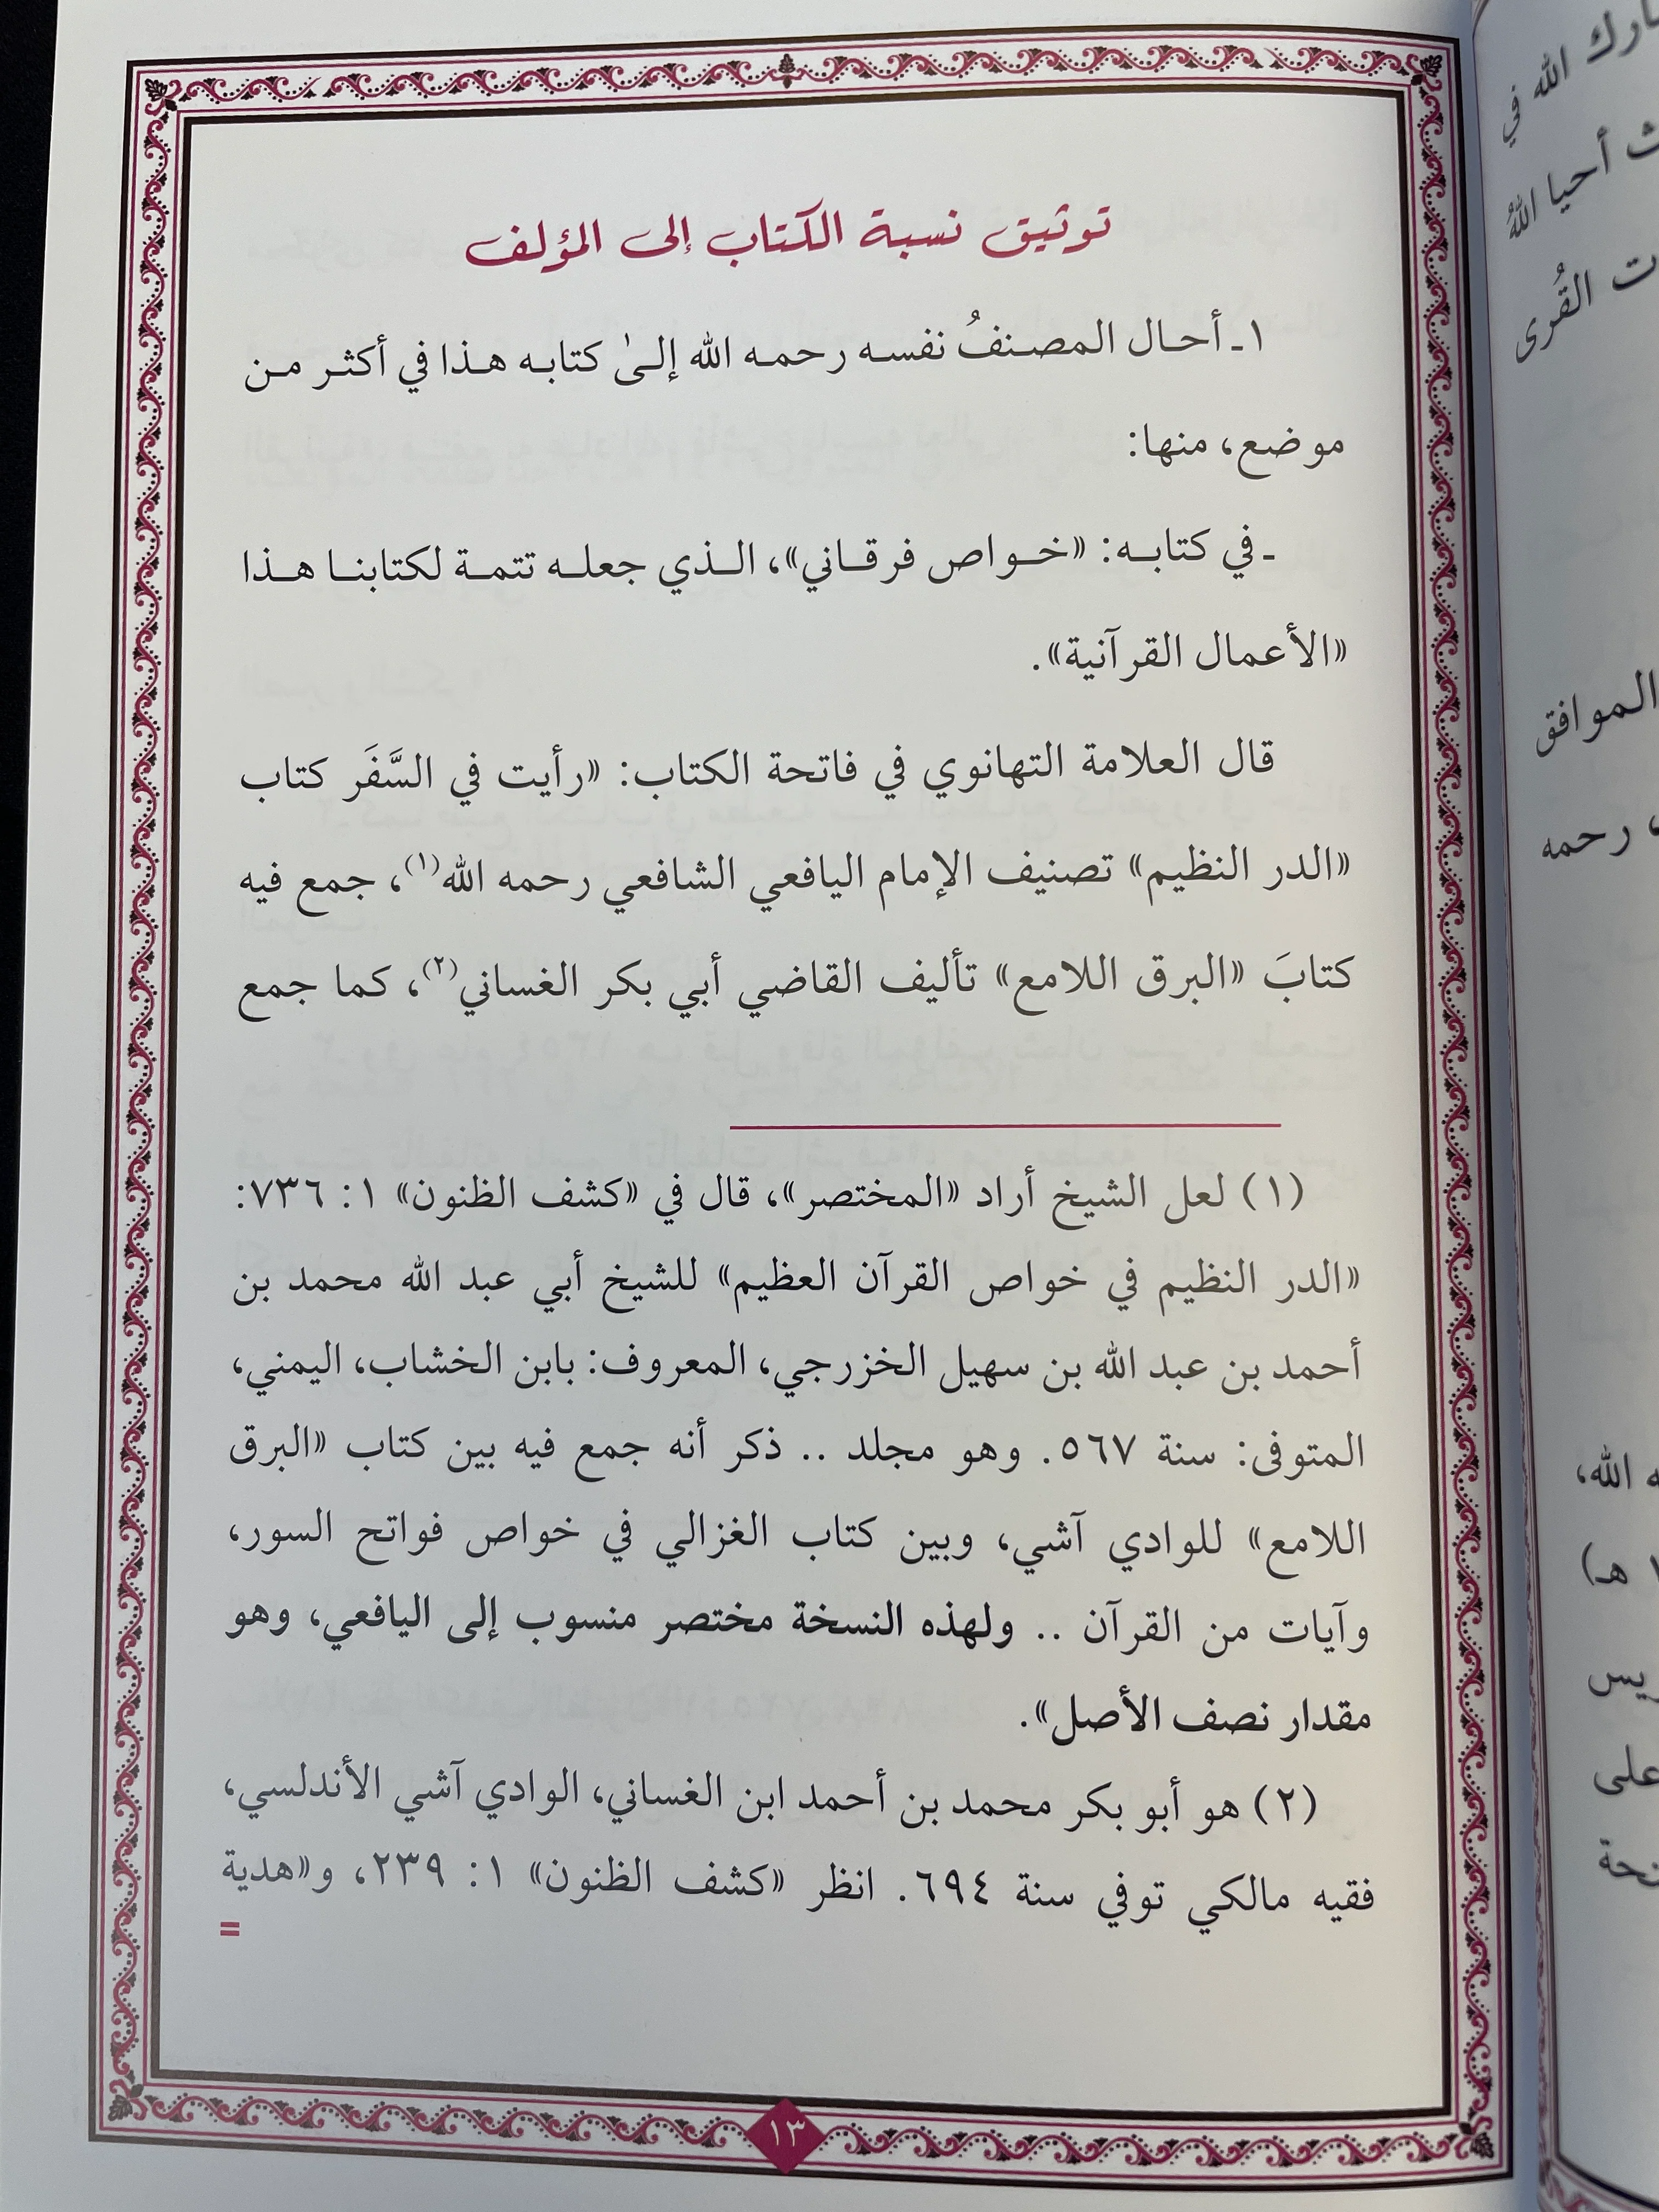 توثيق نسبة الكتاب إلى المؤلف
١ ـ أحال المصنفُ نفسه رحمه الله إلىٰ كتابه هذا في أكثر من
موضع، منها:
ـ في كتابه: «خواص فرقاني»، الذي جعله تتمة لكتابنا هذا
«الأعمال القرآنية».
قال العلامة التهانوي في فاتحة الكتاب: «رأيت في السَّفَر كتاب
«الدر النظيم» تصنيف الإمام اليافعي الشافعي رحمه الله(١)، جمع فيه
كتابَ «البرق اللامع» تأليف القاضي أبي بكر الغساني(٢)، كما جمع
(١) لعل الشيخ أراد «المختصر»، قال في «كشف الظنون» ١: ٧٣٦:
«الدر النظيم في خواص القرآن العظيم» للشيخ أبي عبد الله محمد بن
أحمد بن عبد الله بن سهيل الخزرجي، المعروف: بابن الخشاب، اليمني،
المتوفى: سنة ٥٦٧. وهو مجلد .. ذكر أنه جمع فيه بين كتاب «البرق
اللامع» للوادي آشي، وبين كتاب الغزالي في خواص فواتح السور،
وآيات من القرآن .. ولهذه النسخة مختصر منسوب إلى اليافعي، وهو
مقدار نصف الأصل».
(٢) هو أبو بكر محمد بن أحمد ابن الغساني، الوادي آشي الأندلسي،
فقيه مالكي توفي سنة ٦٩٤. انظر «كشف الظنون» ١: ٢٣٩، و«هدية
=
١٣
الله في
أحيا اللهُ
القُرى
الموافق
رحمه
الله،
هـ)
على